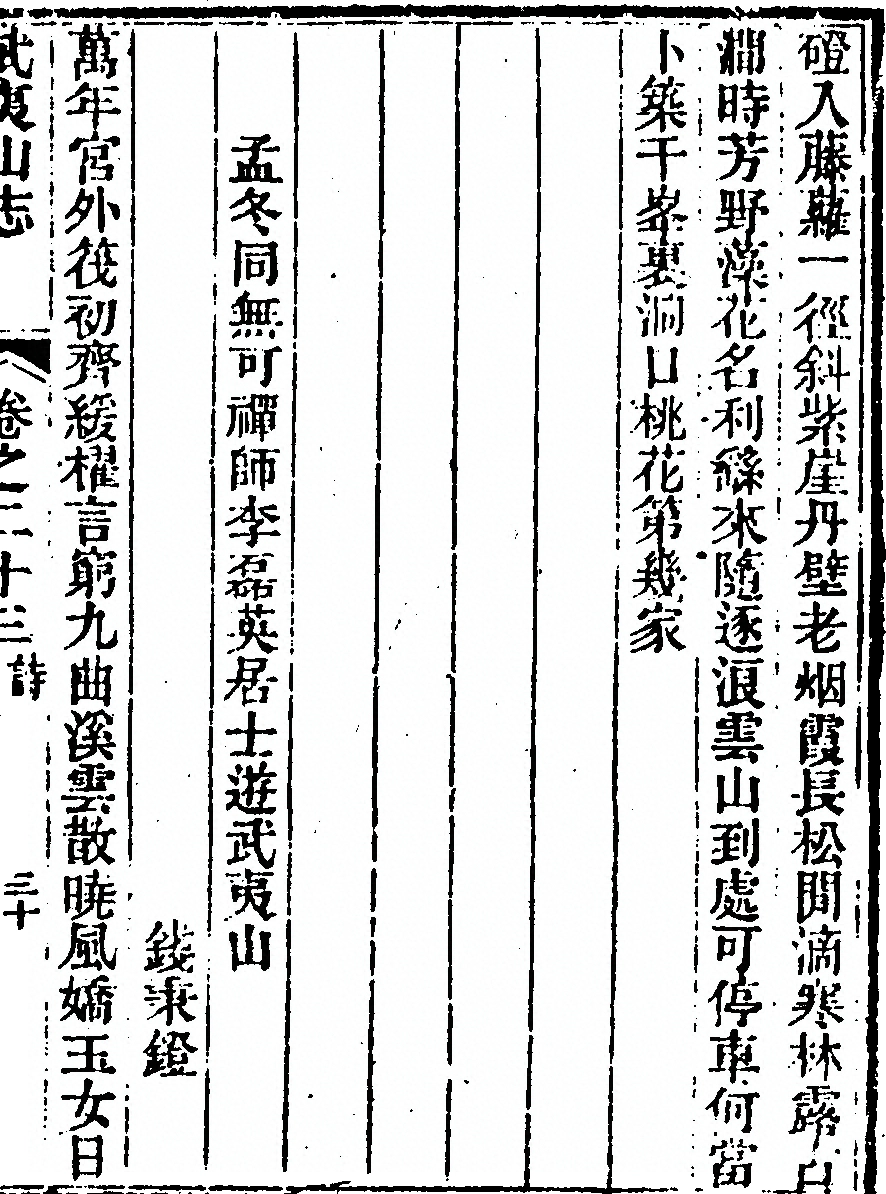 磴入藤蘿一徑斜紫崖丹壁老烟霞長松閒滴寒林露白
澗時芳野藻花名利緣來隨逐浪雲山到處可停車何當
卜築千峯裏洞口桃花第幾家
孟冬同無可禪師李磊英居士遊武夷山
錢秉鐙
萬年宮外筏初齊緩櫂言窮九曲溪雲散曉風嬌玉女日
武夷山志 卷之二十三 詩 三十